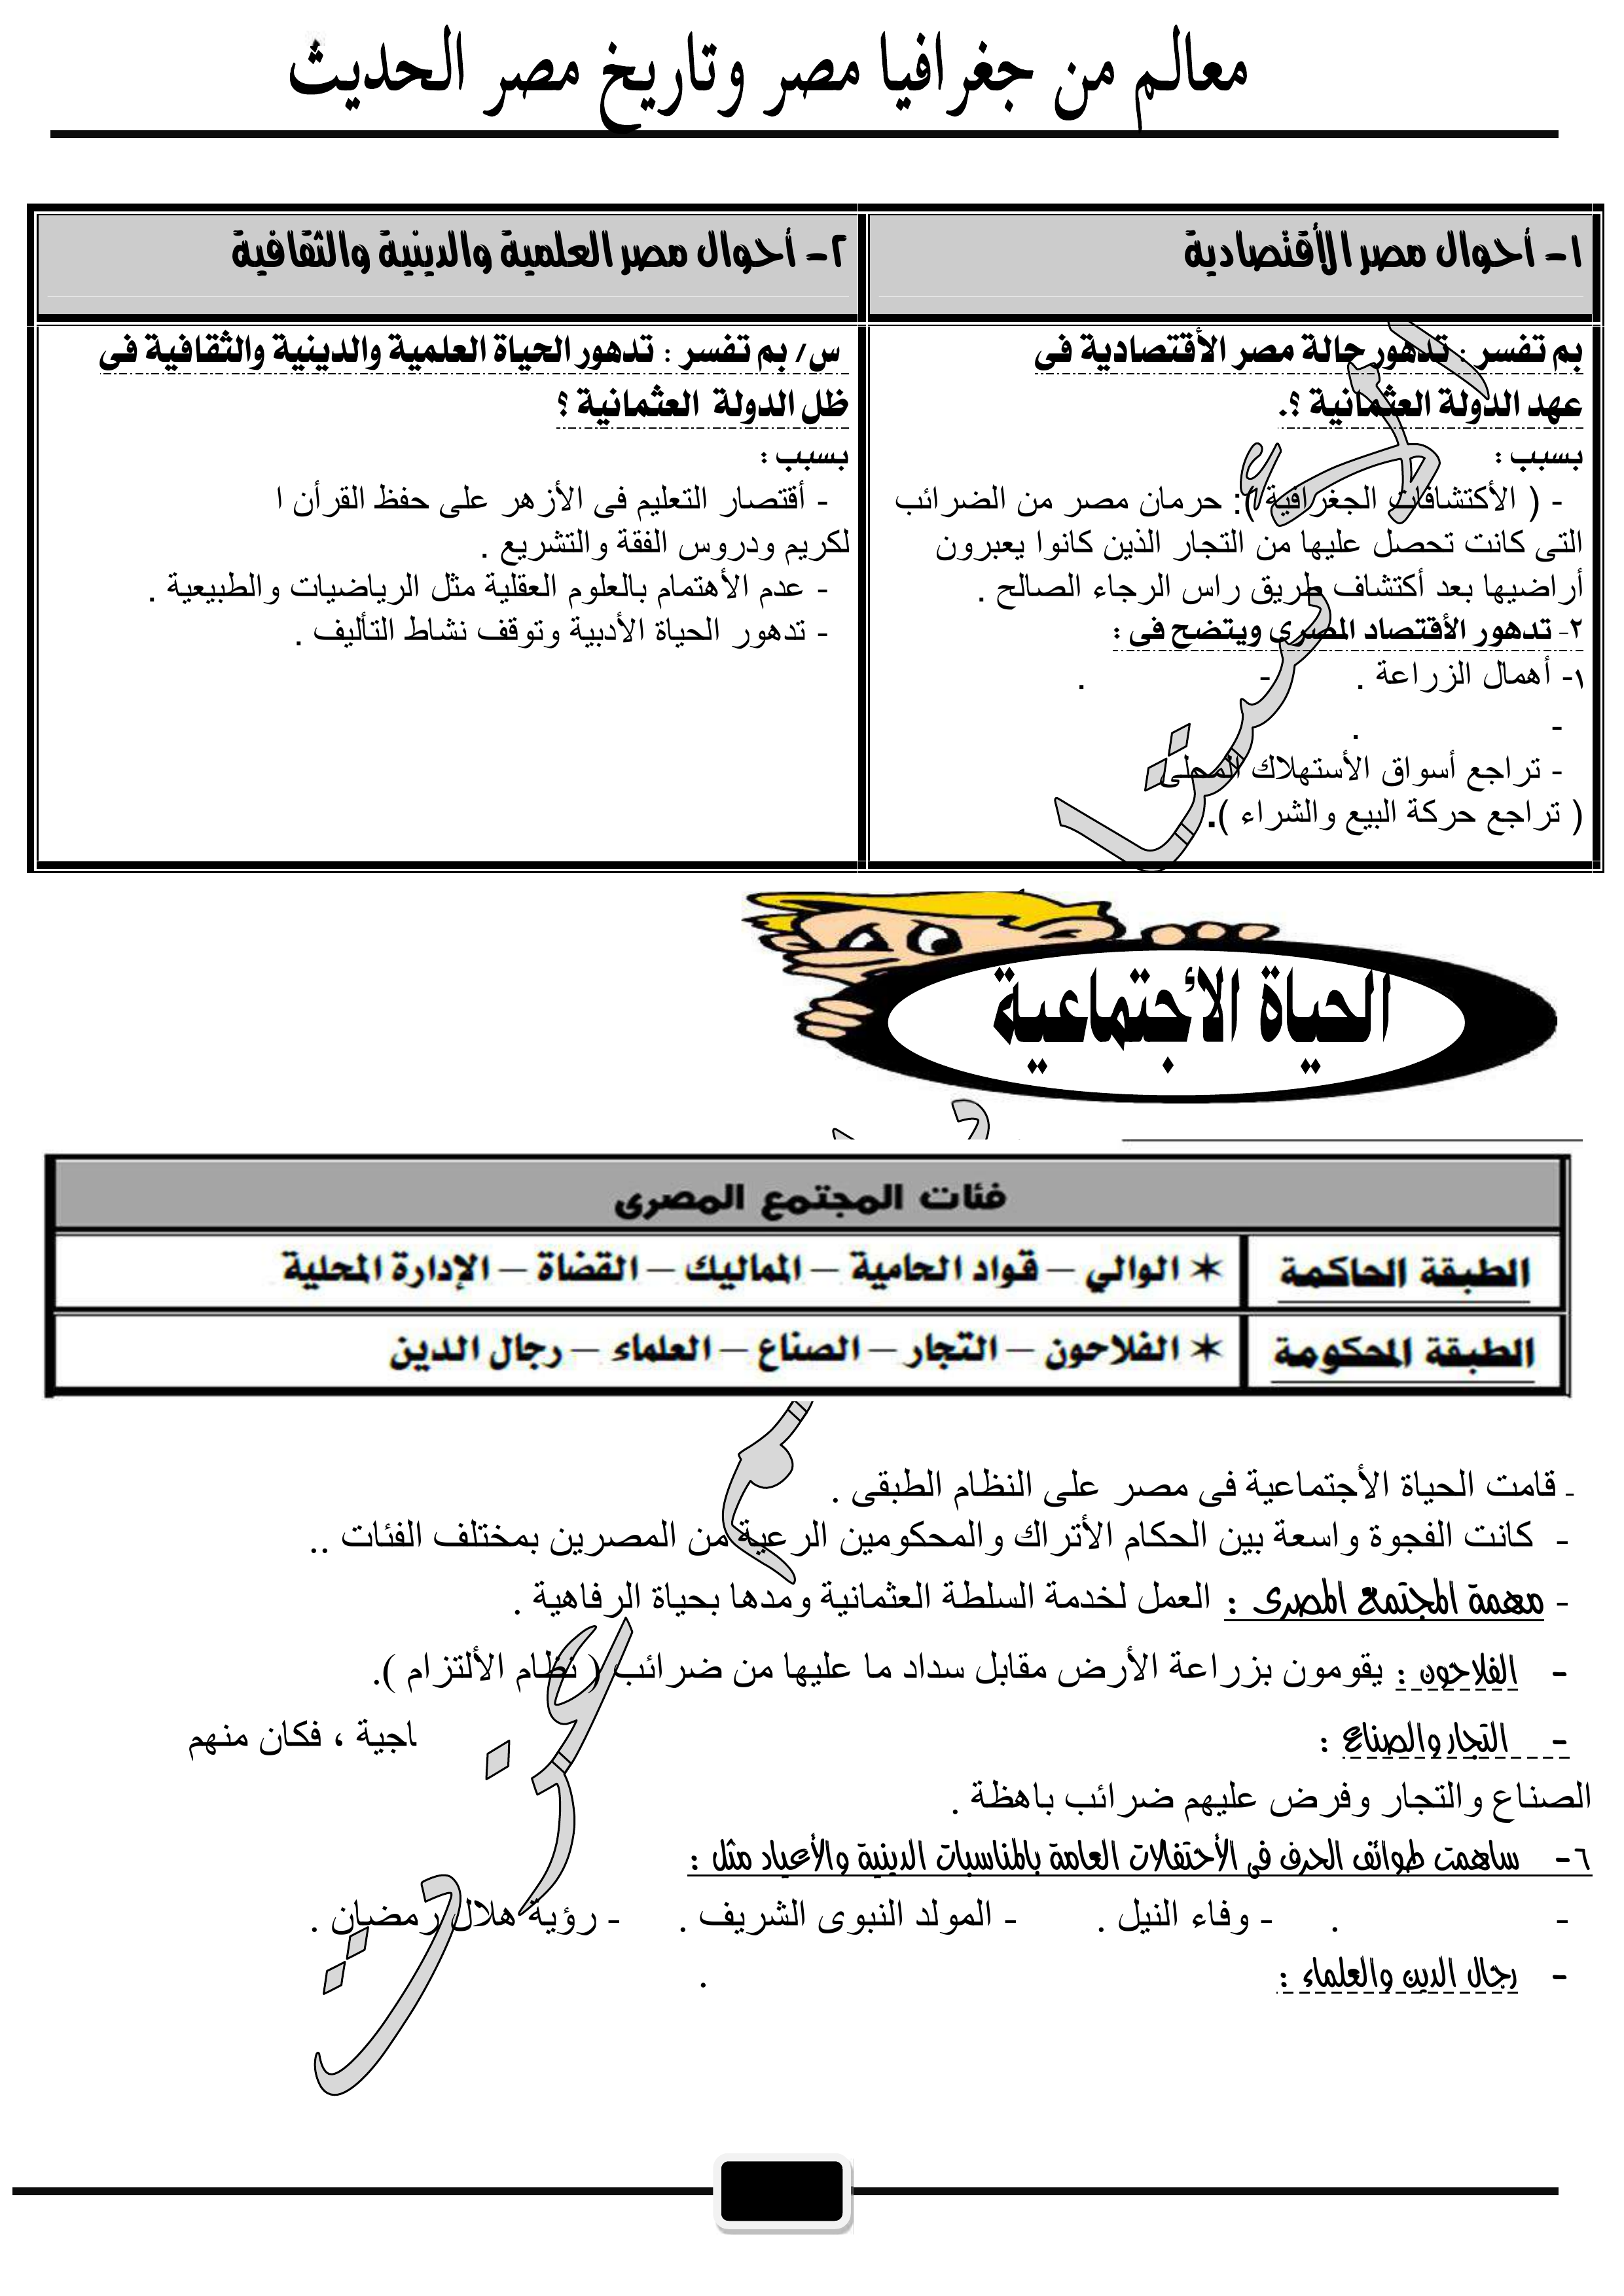 معالم من جغرافيا مصر وتاريخ مصر الحديث
١- أحوال مصر الأقتصادية
بم تفسر : تدهور حالة مصر الأقتصادية فى
عهد الدولة العثمانية ؟.
بسبب :
- ( الأكتشافات الجغرافية ): حرمان مصر من الضرائب
التى كانت تحصل عليها من التجار الذين كانوا يعبرون
أراضيها بعد أكتشاف طريق راس الرجاء الصالح .
٢- تدهور الأقتصاد المصرى ويتضح فى :
١- أهمال الزراعة . - .
- .
- تراجع أسواق الأستهلاك المحلى
( تراجع حركة البيع والشراء ).
٢- أحوال مصر العلمية والدينية والثقافية
س/ بم تفسر : تدهور الحياة العلمية والدينية والثقافية فى
ظل الدولة العثمانية ؟
بسبب :
- أقتصار التعليم فى الأزهر على حفظ القرأن ا
لكريم ودروس الفقة والتشريع .
- عدم الأهتمام بالعلوم العقلية مثل الرياضيات والطبيعية .
- تدهور الحياة الأدبية وتوقف نشاط التأليف .
الحياة الأجتماعية
فئات المجتمع المصرى
الطبقة الحاكمة
✶ الوالي – قواد الحامية – المماليك – القضاة – الإدارة المحلية
الطبقة المحكومة
✶ الفلاحون – التجار – الصناع – العلماء – رجال الدين
- قامت الحياة الأجتماعية فى مصر على النظام الطبقى .
- كانت الفجوة واسعة بين الحكام الأتراك والمحكومين الرعية من المصرين بمختلف الفئات ..
- مهمة المجتمع المصرى : العمل لخدمة السلطة العثمانية ومدها بحياة الرفاهية .
- الفلاحون : يقومون بزراعة الأرض مقابل سداد ما عليها من ضرائب ( نظام الألتزام ).
- التجار والصناع : اجية ، فكان منهم
الصناع والتجار وفرض عليهم ضرائب باهظة .
٦- ساهمت طوائف الحرف فى الأحتفلات العامة بالمناسبات الدينية والأعياد مثل :
- . - وفاء النيل . - المولد النبوى الشريف . - رؤية هلال رمضان .
- رجال الدين والعلماء : .